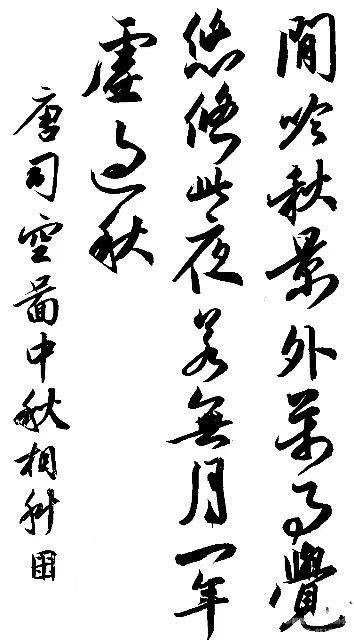 閒吟秋景外萬事覺
悠悠此夜若無月一年
虛過秋
唐司空圖中秋相科